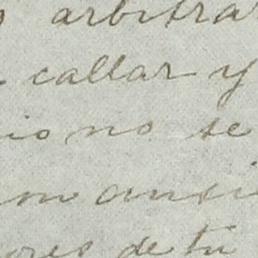 arbitrar
callar y
io no se
om ansi
ores de tu